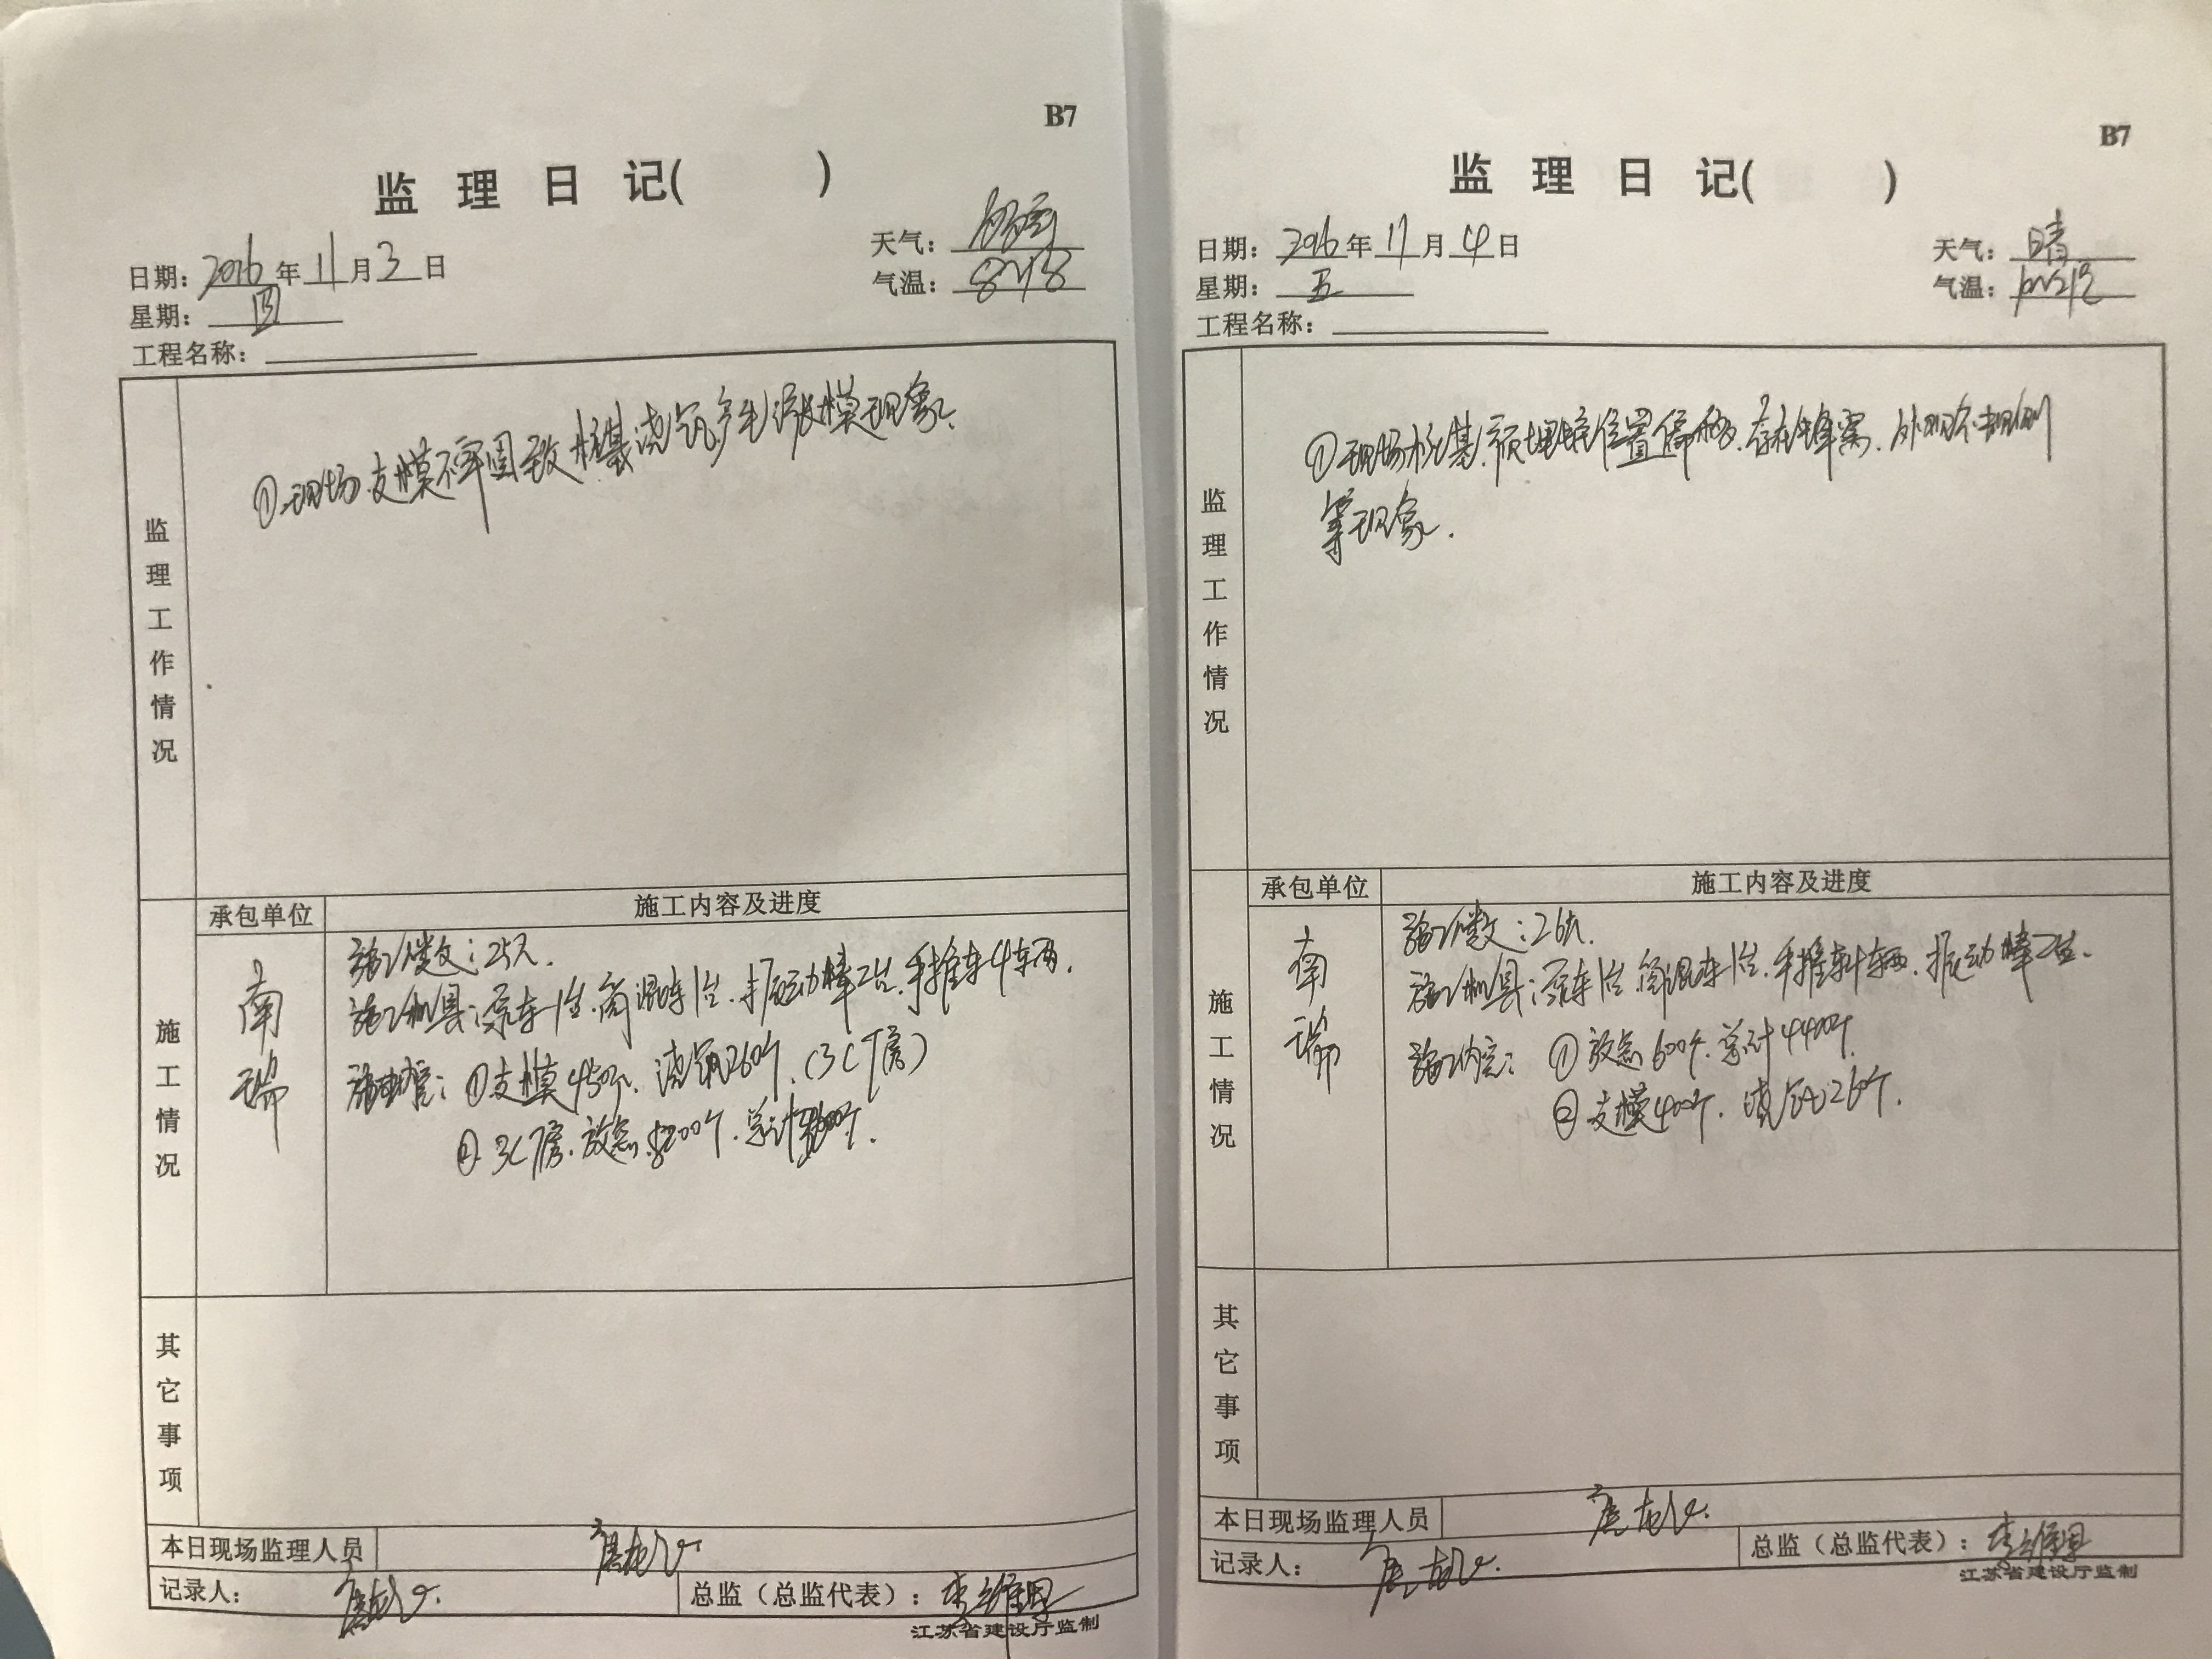 B7
监理日记( )
日期：2016年11月3日
天气：
星期：四
气温：8~18
工程名称：
监理工作情况
①现场支模不牢固致桩基浇筑多生涨模现象.
承包单位
施工内容及进度
施工情况
南瑞
施工人数：25人.
施工机具：泵车1台.简混车1台.振动棒2台.手推车4车辆.
施工内容：①支模450个.浇筑260个.(3C厂房)
② 3C厂房.放点 200个.总计
其它事项
本日现场监理人员
记录人：
总监（总监代表）：
江苏省建设厅监制
B7
监理日记( )
日期：2016年11月4日
天气：晴
星期：五
气温：
工程名称：
监理工作情况
①现场桩基.预埋螺栓位置偏移.存在蜂窝.外观不规则
等现象.
承包单位
施工内容及进度
施工情况
南瑞
施工人数：26人.
施工机具：泵车1台.简混车1台.手推车4车辆.振动棒2台.
施工内容：①放点600个.总计4400个.
②支模400个.浇筑260个.
其它事项
本日现场监理人员
记录人：
总监（总监代表）：
江苏省建设厅监制